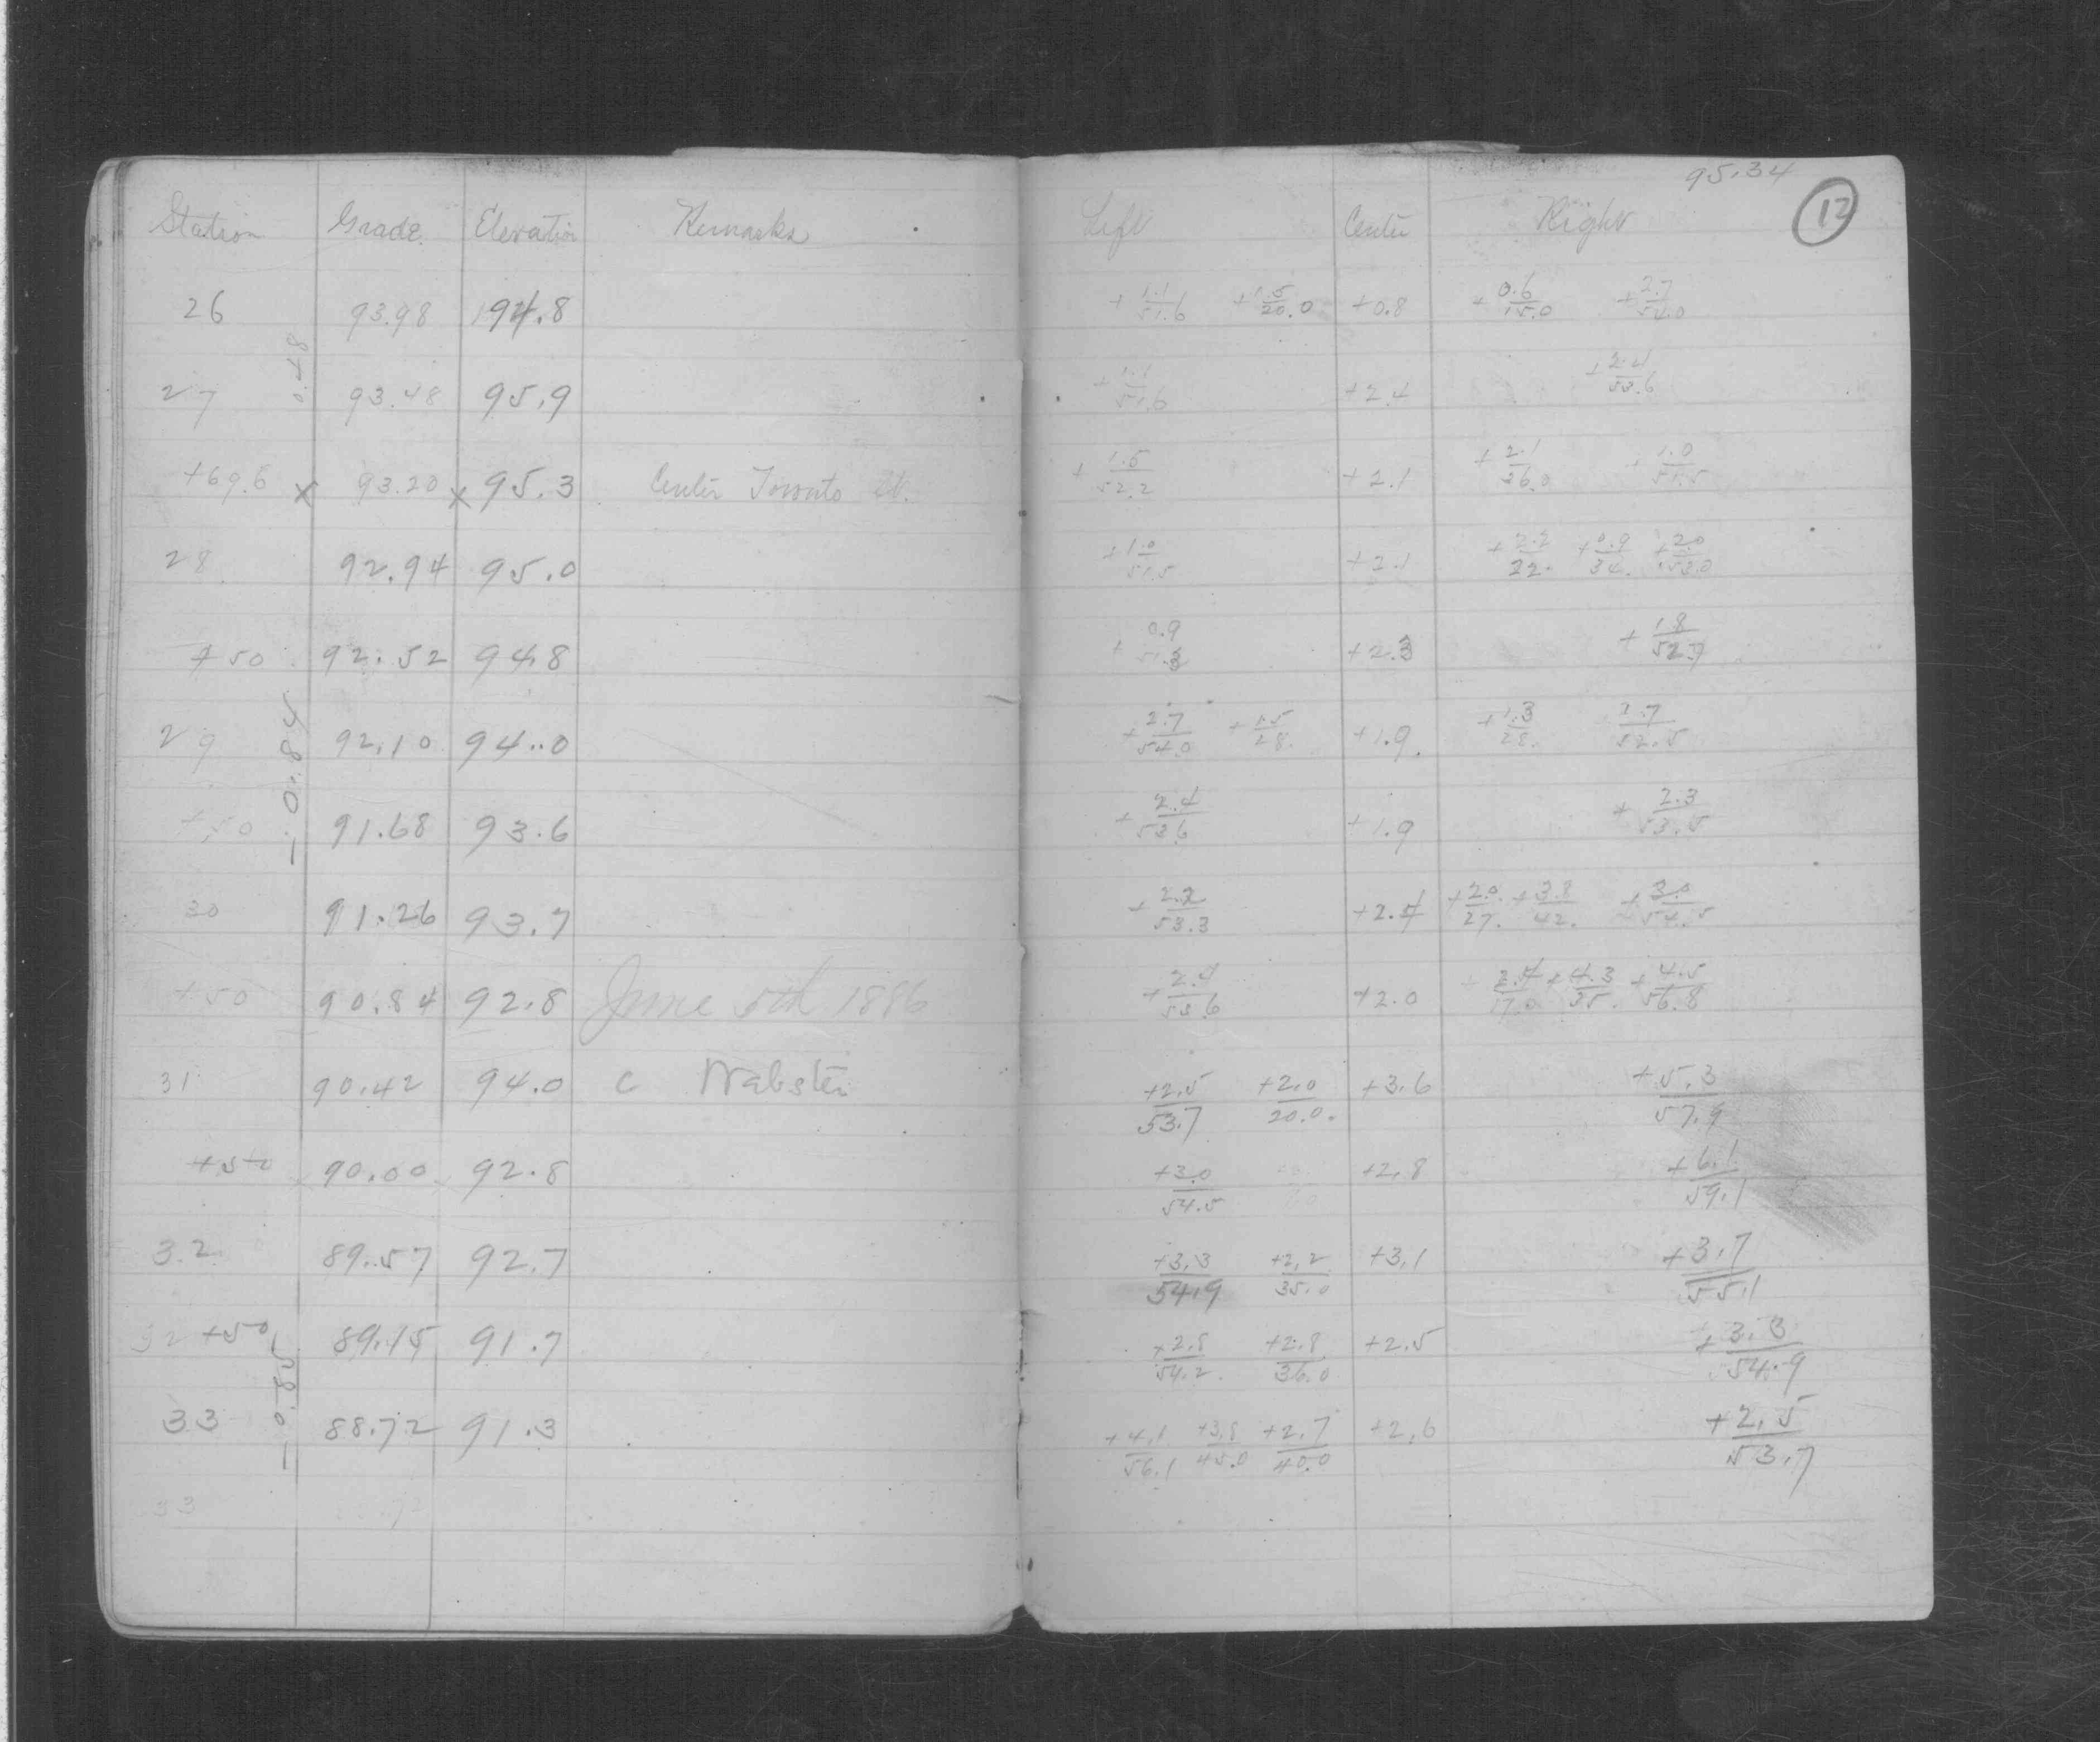 95.34
Station Grade Elevation Remarks Left Center Right 12
26 93.98 94.8 +1.1/51.6 +1.5/20.0 +0.8 +0.6/15.0 +2.7/54.0
0.48
27 93.48 95.9 +1.1/51.6 +2.4 +2.4/53.6
+69.6 x 93.20 x 95.3 Center Toronto St. +1.5/52.2 +2.1 +2.1/36.0 +1.0/51.5
28 92.94 95.0 +1.0/51.5 +2.1 +2.2/22. +0.9/34. +2.0/53.0
+50 92.52 94.8 +0.9/51.3 +2.3 +1.8/52.7
29 92.10 94.0 +2.7/54.0 +1.5/28. +1.9 +1.3/28. 1.7/52.5
-0.84
+50 91.68 93.6 +2.4/53.6 +1.9 +2.3/53.5
30 91.26 93.7 +2.2/53.3 +2.4 +2.0/27. +3.8/42. +3.0/54.5
+50 90.84 92.8 June 5th 1886 +2.4/53.6 +2.0 +2.4/17.0 +4.3/35. +4.5/56.8
31 90.42 94.0 C Wabster +2.5/53.7 +2.0/20.0 +3.6 +5.3/57.9
+50 90.00 92.8 +3.0/54.5 +2.8 +6.1/59.1
32 89.57 92.7 +3.3/54.9 +2.2/35.0 +3.1 +3.7/55.1
32 +50 89.15 91.7 +2.8/54.2 +2.8/36.0 +2.5 +3.3/54.9
-0.85
33 88.72 91.3 +4.1/56.1 +3.8/45.0 +2.7/40.0 +2.6 +2.5/53.7
33